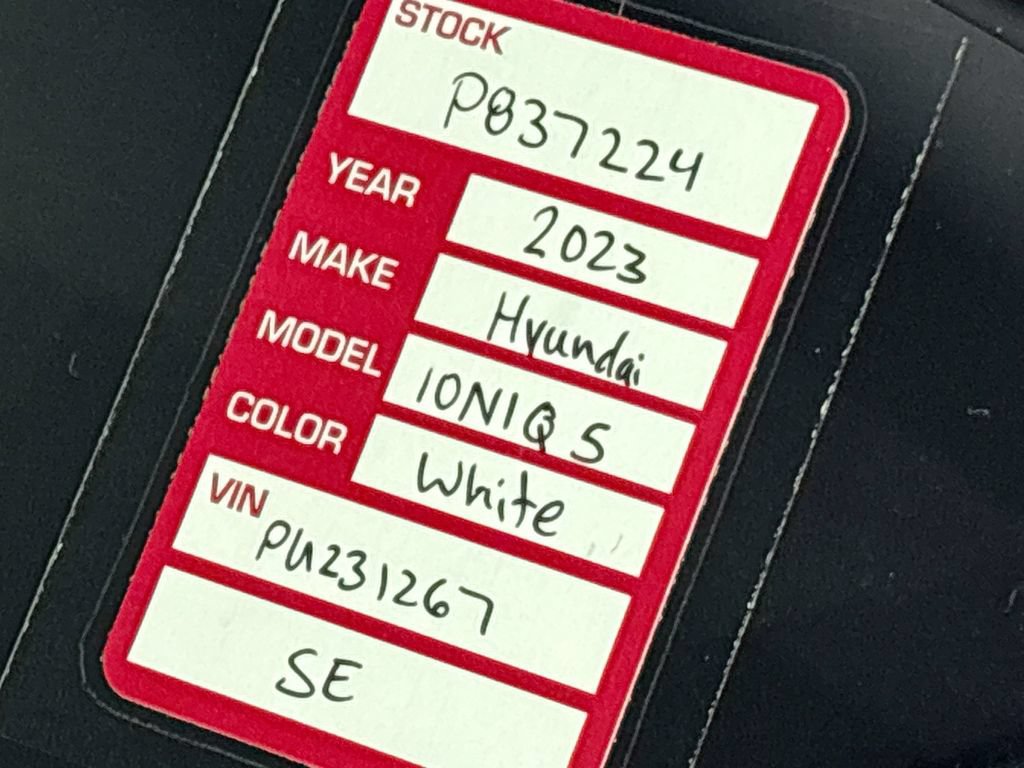 STOCK
P837224
YEAR 2023
MAKE Hyundai
MODEL IONIQ 5
COLOR White
VIN
PU231267
SE